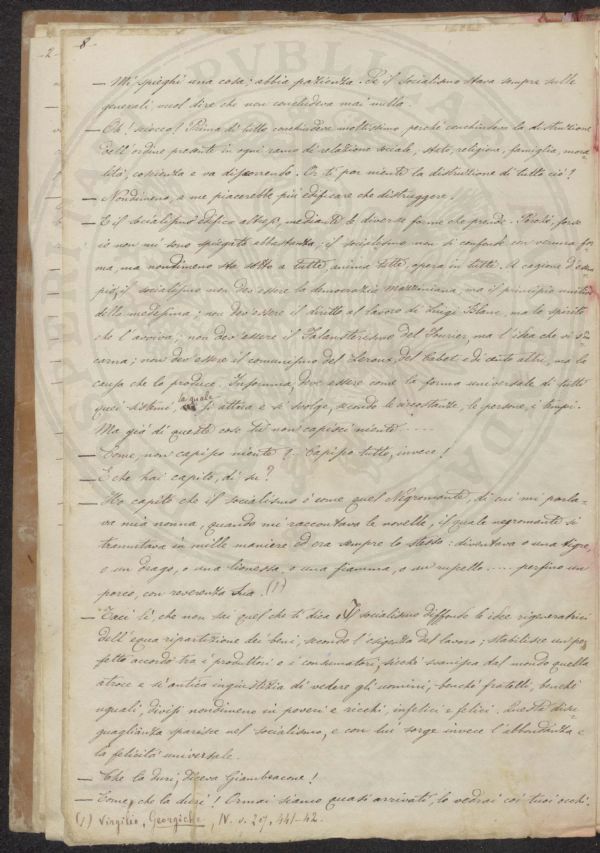 8
— Mi spieghi una cosa; abbia pazienza. Se il socialismo stava sempre sulle
generali, vuol dire che non concludeva mai nulla.
— Oh! sciocco! Prima di tutto conchiudere moltissimo, perchè conchiudere la distruzione
dell'ordine presente in ogni ramo di relazione sociale, Stato, religione, famiglia, mora-
lità, coscienza e va discorrendo. Or ti par niente la distruzione di tutto ciò?
— Nondimeno, a me piacerebbe più edificare che distruggere.
— E il socialismo edifica altresì, mediante le diverse forme che prende. Perchè, forse
io non mi sono spiegato abbastanza; il socialismo non si confonde con veruna for
ma, ma nondimeno sta sotto a tutte, anima tutte, opera in tutte. A cagione d'esem
pio, il socialismo non dev'essere la democrazia mazziniana, ma il principio
della medesima; non dev'essere il diritto al lavoro di Luigi Blanc, ma lo spirito
che l'avviva; non dev'essere il Falansterismo del Fourier, ma l'idea che vi s'in
carna; non dev'essere il comunismo del Leroux, del Cabet e di cento altri, ma la
causa che lo produce. Insomma, deve essere come la forma universale di tutti
quei sistemi, la quale si attua e si svolge, secondo le circostanze, le persone, i tempi.
Ma già di queste cose tu non capisci niente.....
— Come, non capisco niente? Capisco tutto, invece!
— E che hai capito, di' su?
— Ho capito che il socialismo è come quel Negromante, di cui mi parla-
va mia nonna, quando mi raccontava le novelle, il quale negromante si
tramutava in mille maniere ed era sempre lo stesso: diventava o una tigre,
o un drago, o una lionessa, o una fiamma, o un ruscello..... perfino un
porco, con reverenza sua. (1)
— Taci lì, che non sai quel che ti dica. Il socialismo diffonde le idee rigeneratrici
dell'equa ripartizione dei beni, secondo l'esigenza del lavoro; stabilisce un per
fetto accordo tra i produttori e i consumatori, sicchè svanisca dal mondo quella
atroce e sì antica ingiustizia di vedere gli uomini, benchè fratelli, benchè
uguali, divisi nondimeno in poveri e ricchi, infelici e felici. Questa disu-
guaglianza sparisce nel socialismo, e con lui sorge invece l'abbondanza e
la felicità universale.
— Che la duri, diceva Giambracone!
— Come, che la duri! Ormai siamo quasi arrivati, lo vedrai coi tuoi occhi.
(1) Virgilio, Georgiche, IV. v. 207, 441-42.